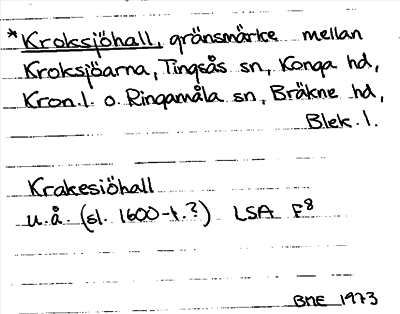 *Kroksjöhall, gränsmärke mellan
Kroksjöarna, Tingsås sn, Konga hd,
Kron.l. o. Ringamåla sn, Bräkne hd,
Blek. l.
Krakesiöhall
u.å. (sl. 1600-t.?) LSA F8
BME 1973